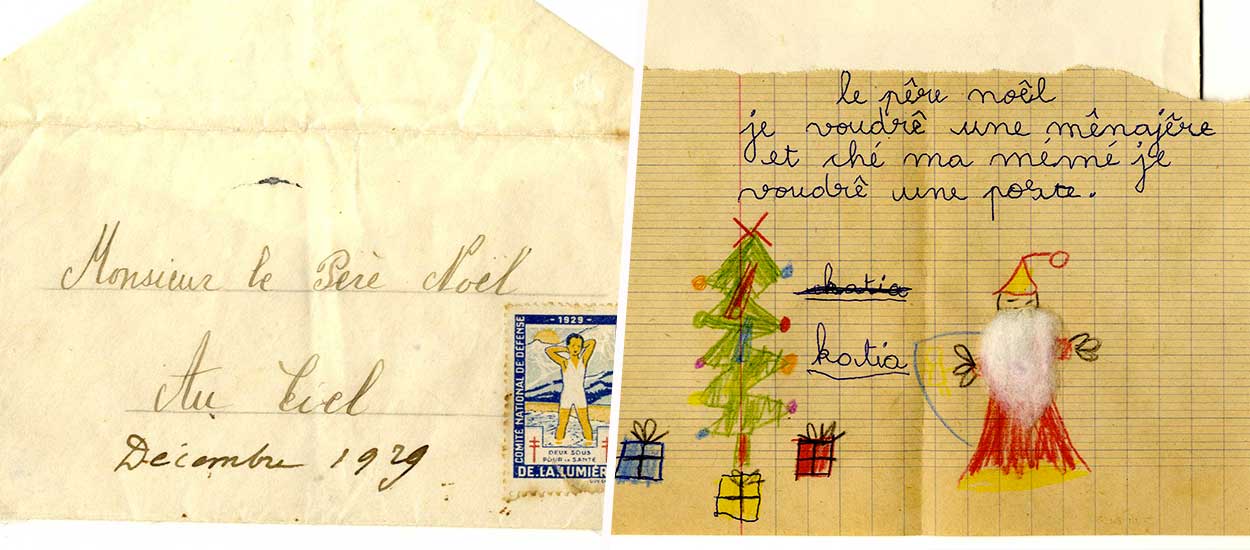 Monsieur le Père Noël
Au Ciel
Décembre 1929
- 1929 -
COMITÉ NATIONAL DE DÉFENSE
DEUX SOUS
POUR LA SANTÉ
DE LA LUMIÈR
le pêre noêl
je voudrê une mênajêre
et ché ma mémé je
voudrê une poste.
katia
katia